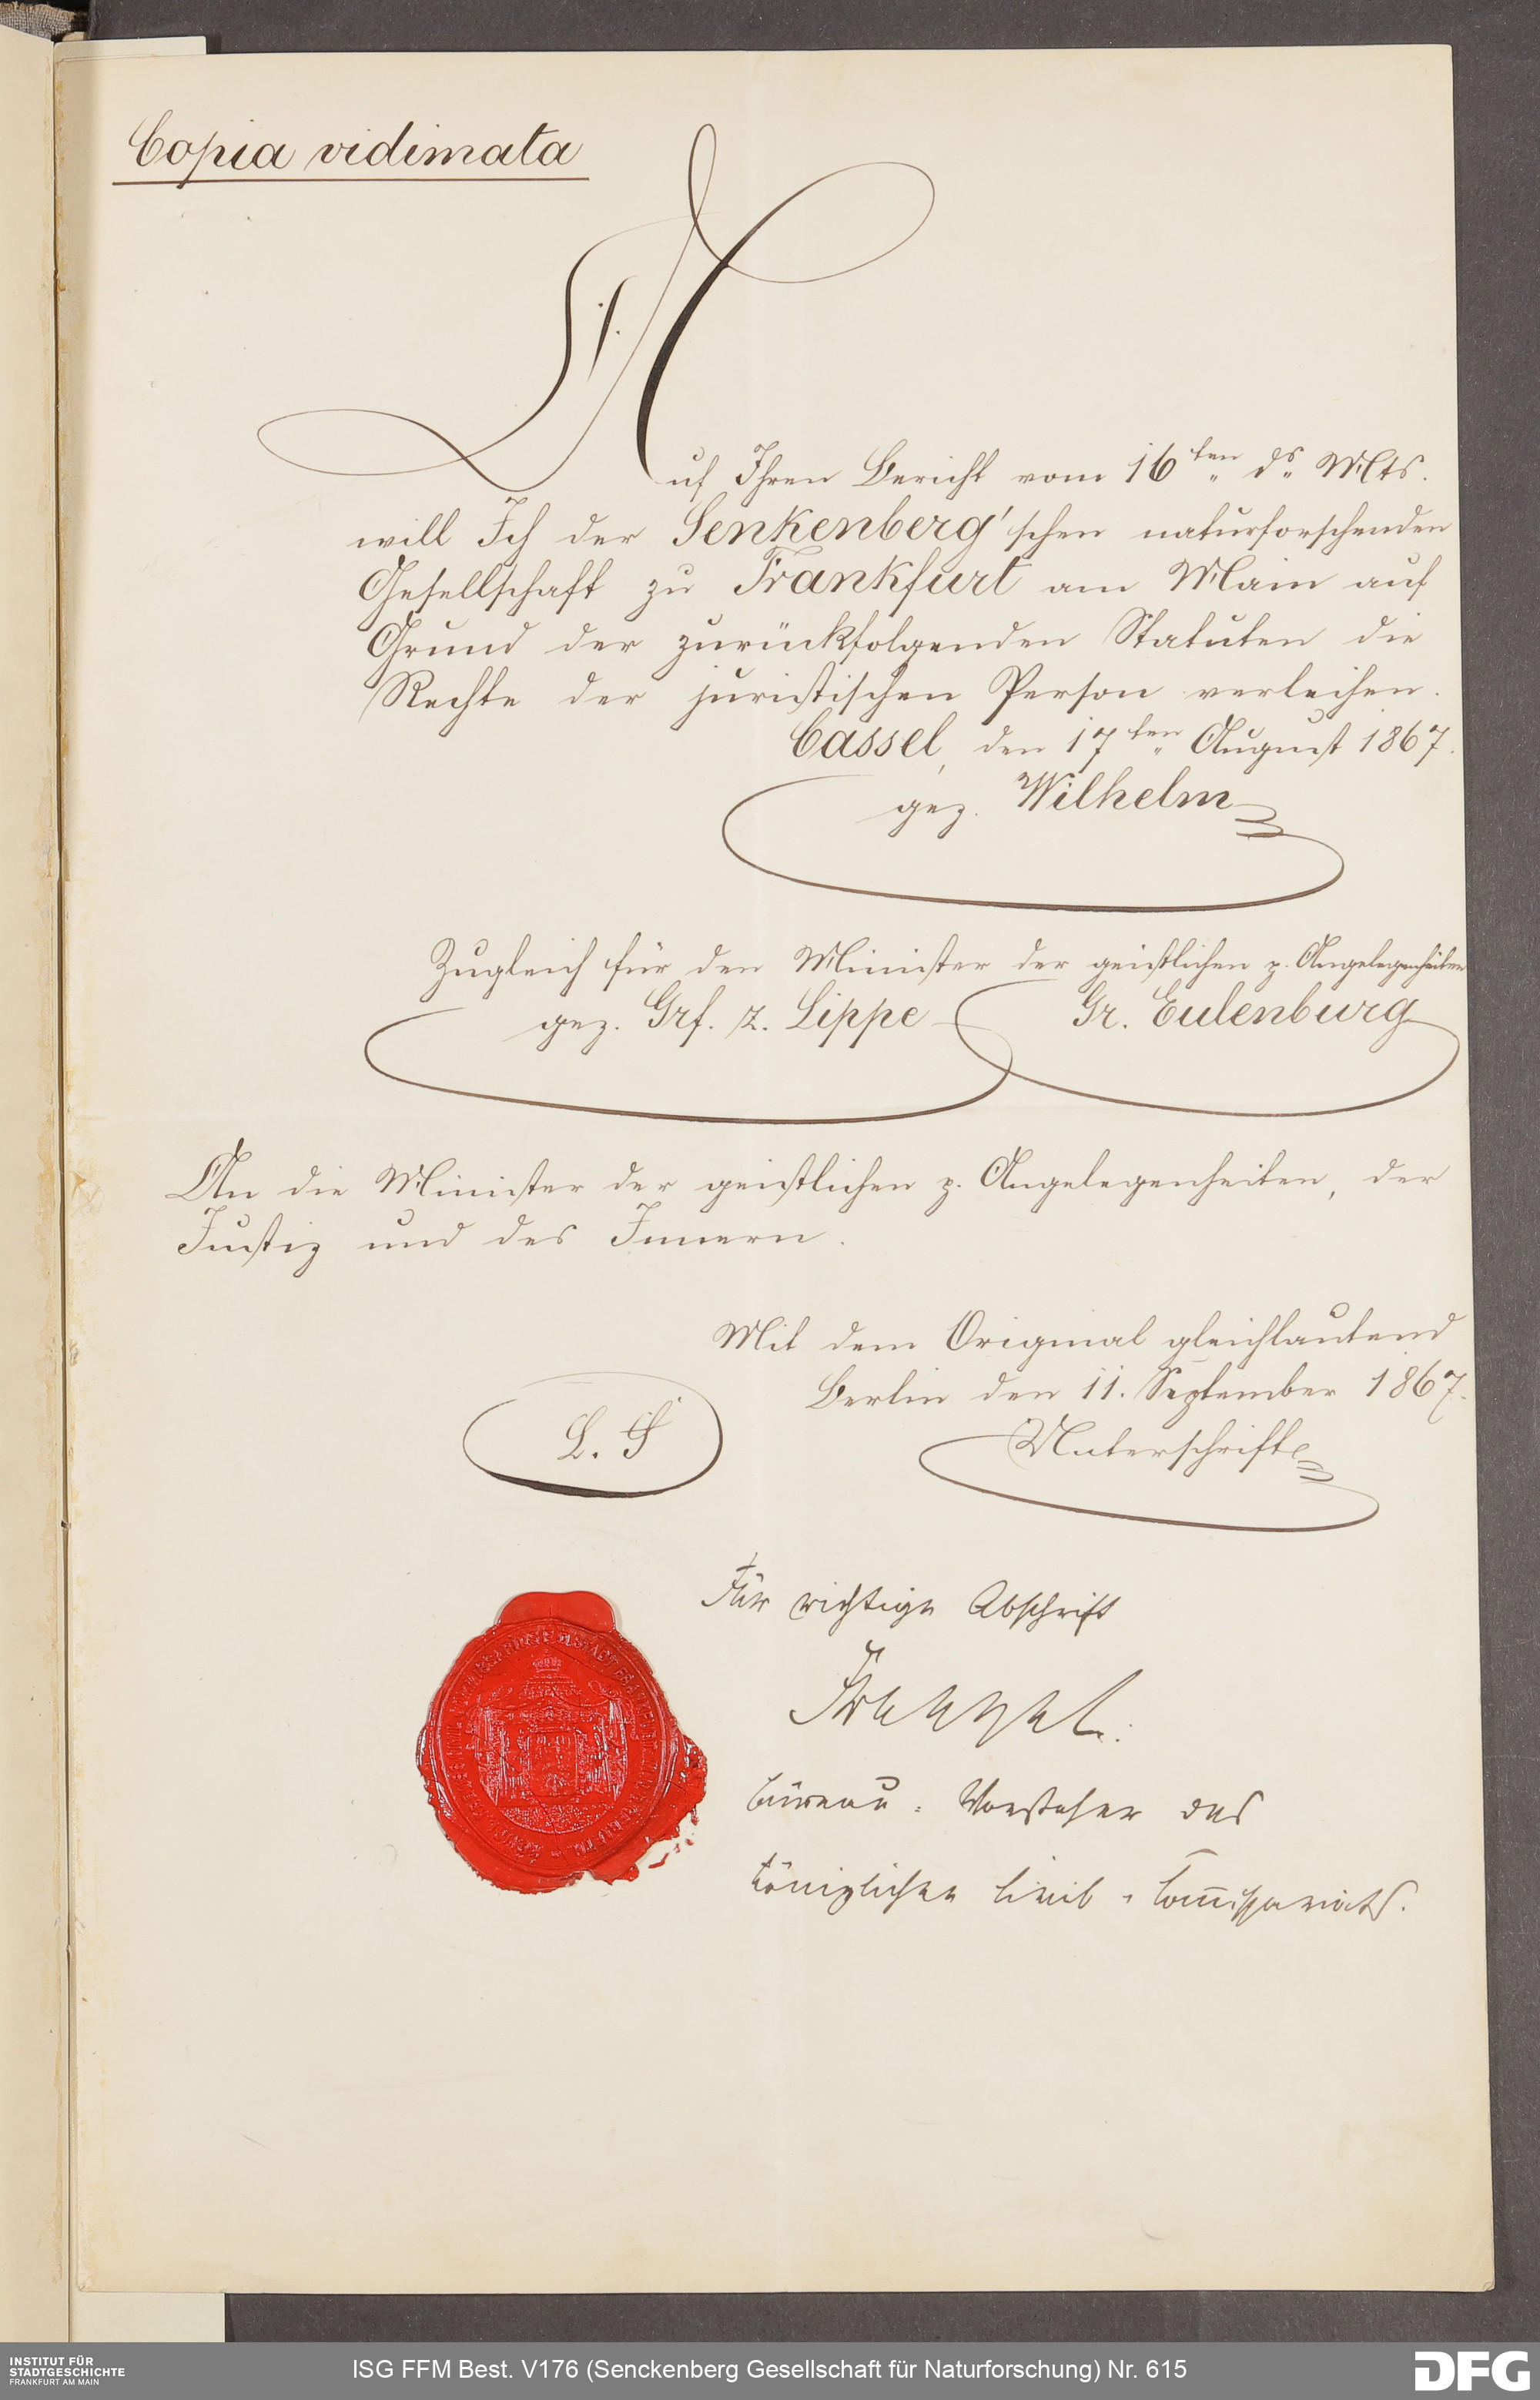 Copia vidimata
Auf Ihren Bericht vom 16ten ds Mts.
will Ich der Senkenberg'schen naturforschenden
Gesellschaft zu Frankfurt am Main auf
Grund der zurückfolgenden Statuten die
Rechte der juristischen Person verleihen.
Cassel, den 17ten August 1867.
gez. Wilhelm
Zugleich für den Minister der geistlichen p. Angelegenheiten
gez. Grf. z. Lippe Gr. Eulenburg
An die Minister der geistlichen p. Angelegenheiten, der
Justiz und des Innern.
Mit dem Original gleichlautend
Berlin den 11. September 1867.
L. S
Unterschrift
Für richtige Abschrift
Büreau-Vorsteher des
Königlichen Civil-Commissariats.
INSTITUT FÜR
STADTGESCHICHTE
FRANKFURT AM MAIN
ISG FFM Best. V176 (Senckenberg Gesellschaft für Naturforschung) Nr. 615
DFG